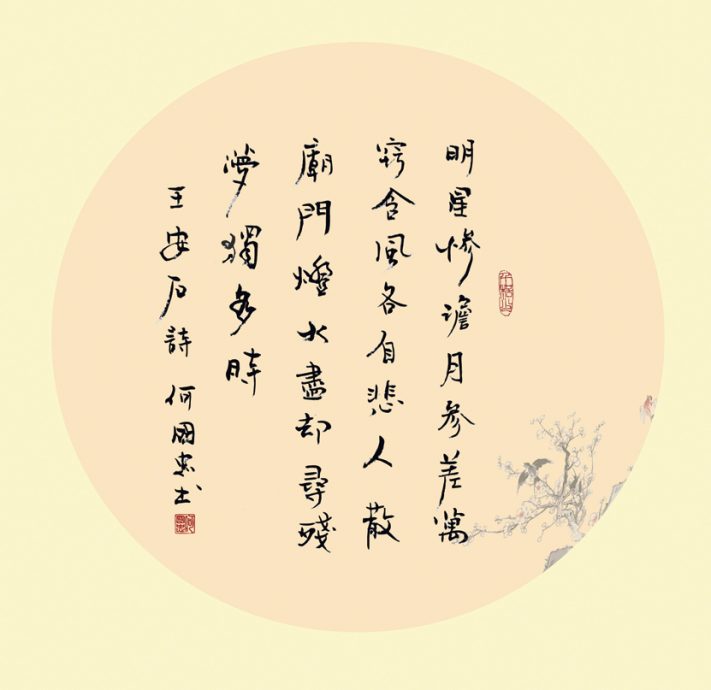 明星慘澹月參差萬
竅含風各自悲人散
廟門燈火盡却尋殘
夢獨多時
王安石詩 何國忠书